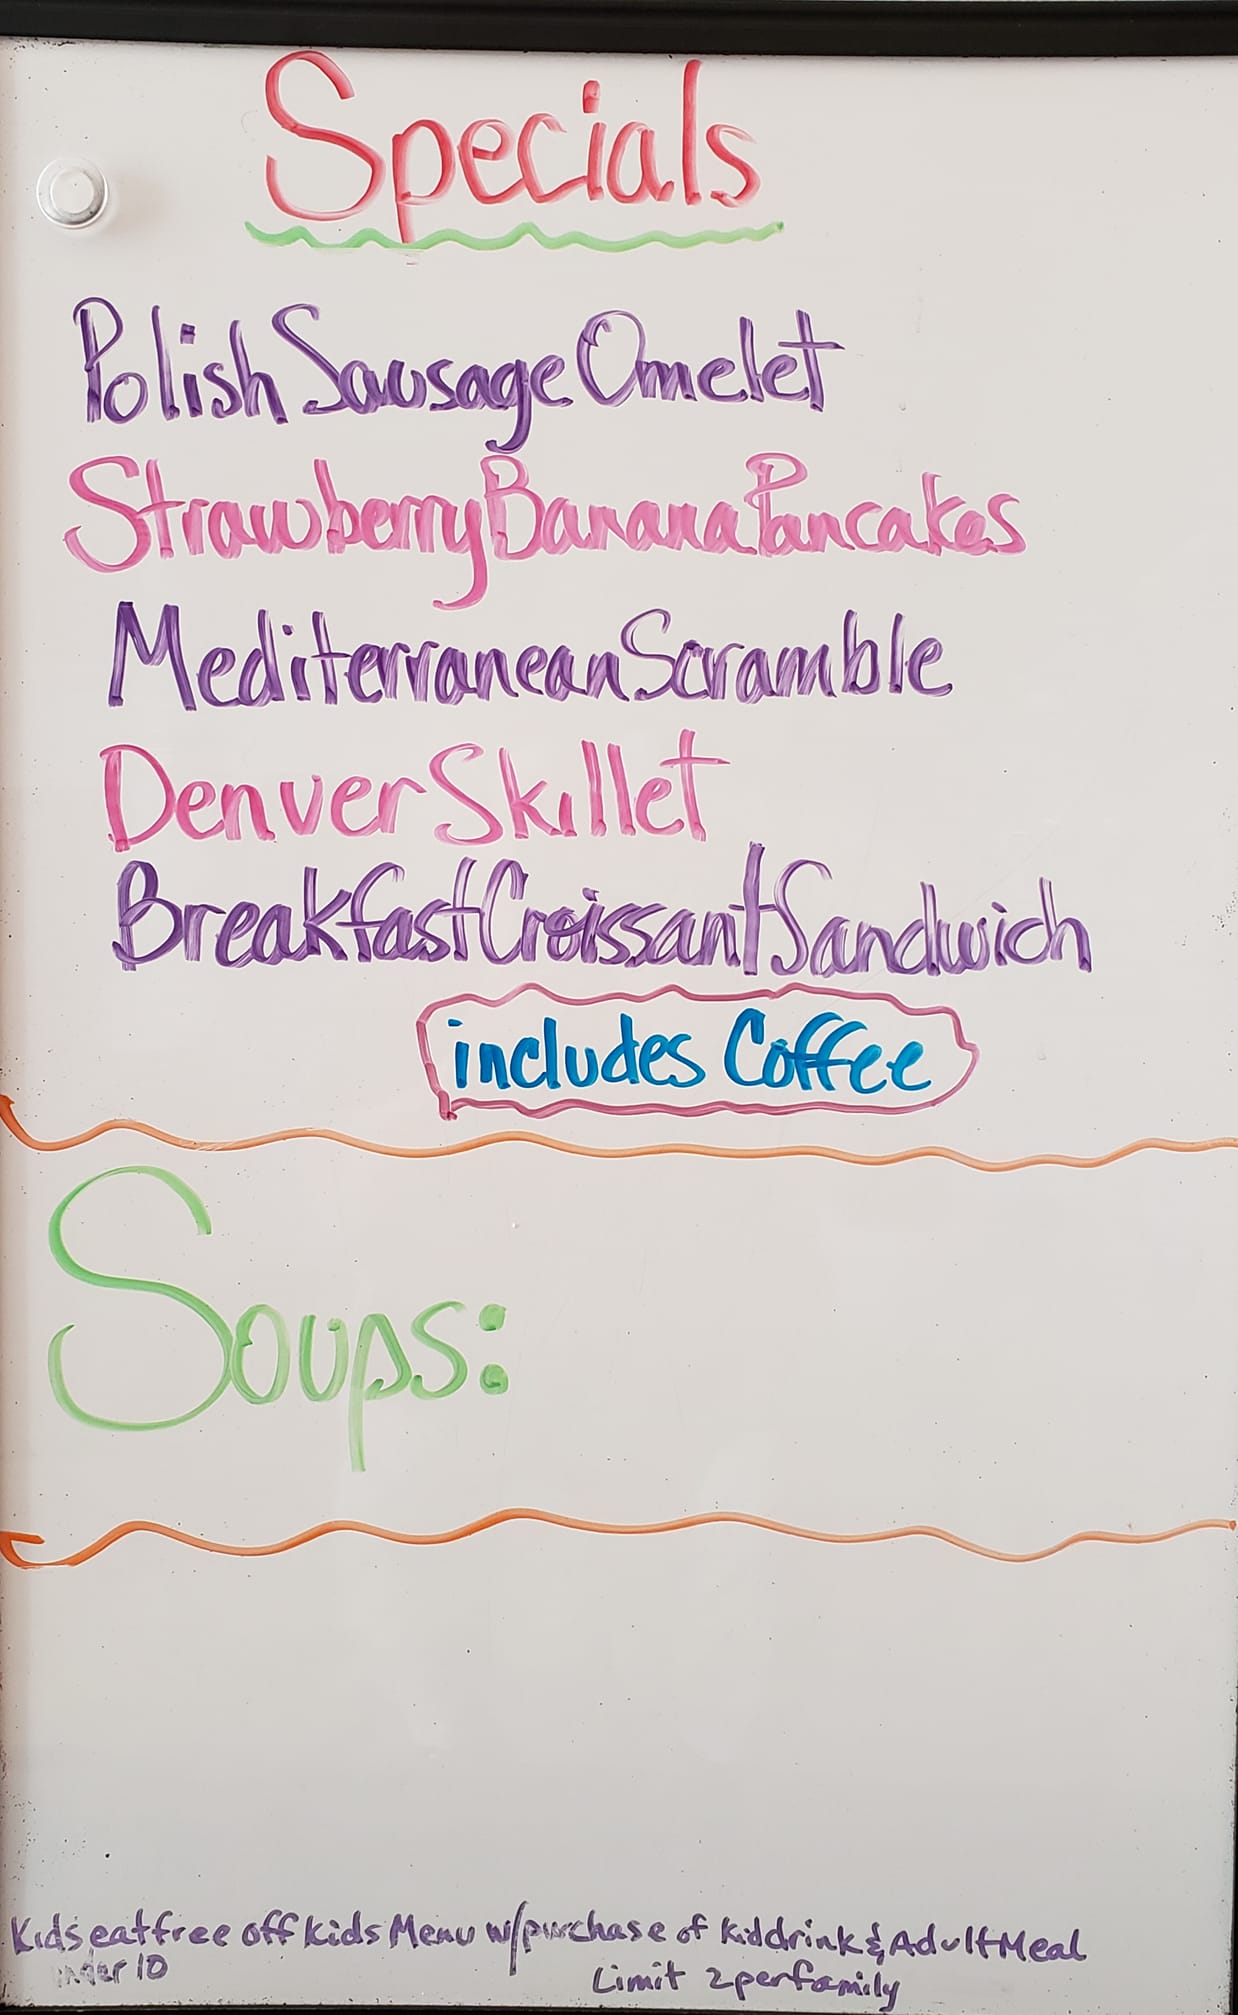 Specials
Polish Sausage Omelet
Strawberry Banana Pancakes
Mediterranean Scramble
Denver Skillet
Breakfast Croissant Sandwich
includes Coffee
Soups:
Kids eat free off kids Menu w/purchase of kid drink & Adult Meal
under 10
Limit 2 per family